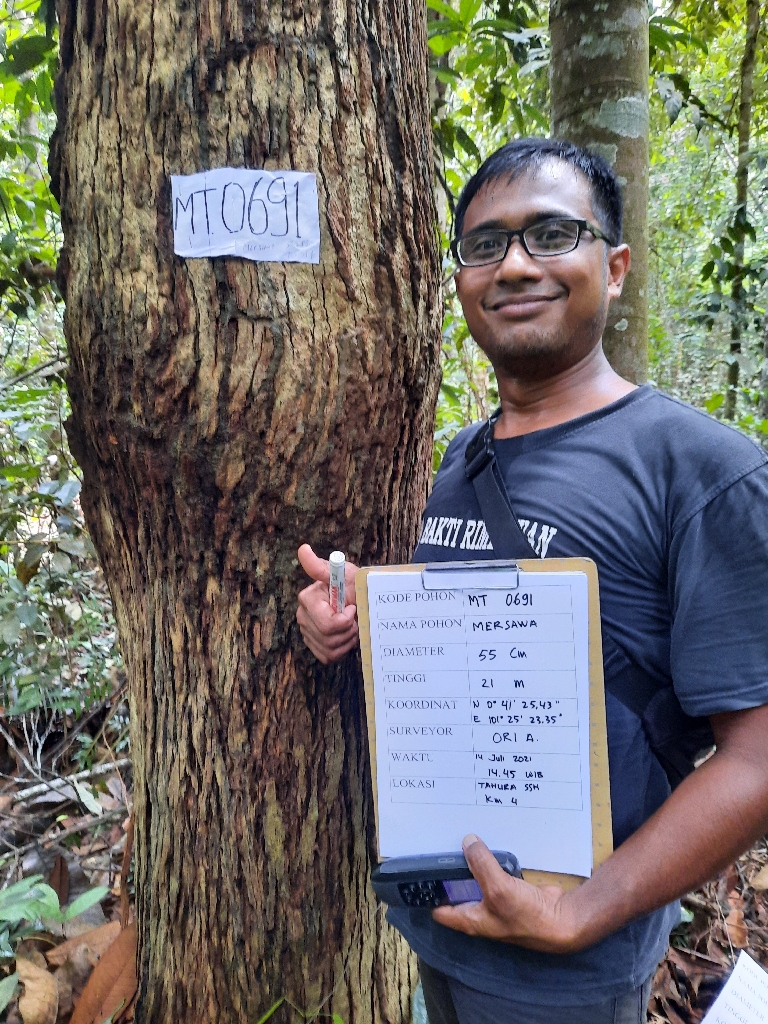 MT.0691
BAKTI RIM
KODE POHON MT 0691
NAMA POHON MERSAWA
DIAMETER 55 Cm
TINGGI 21 m
KOORDINAT N 0° 41' 25,43"
E 101° 25' 23.35"
SURVEYOR ORI A.
WAKTU 14 Juli 2021
14.45 WIB
LOKASI TAHURA SSH
Km 4